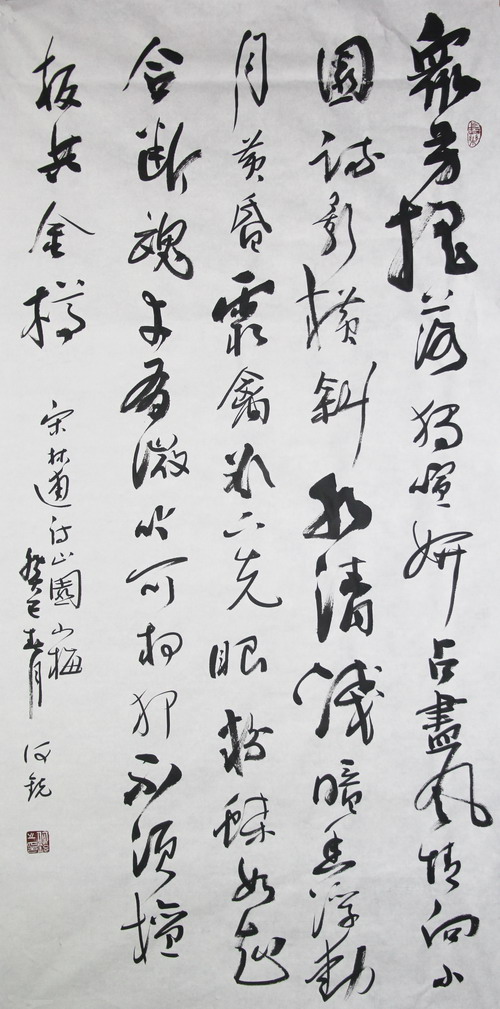 眾芳搖落獨暄妍占盡風情向小
園疏影橫斜水清淺暗香浮動
月黃昏霜禽欲下先眼粉蝶如知
合断魂幸有微吟可相狎不須檀
板共金樽
宋林逋詩山園小梅
癸巳春月